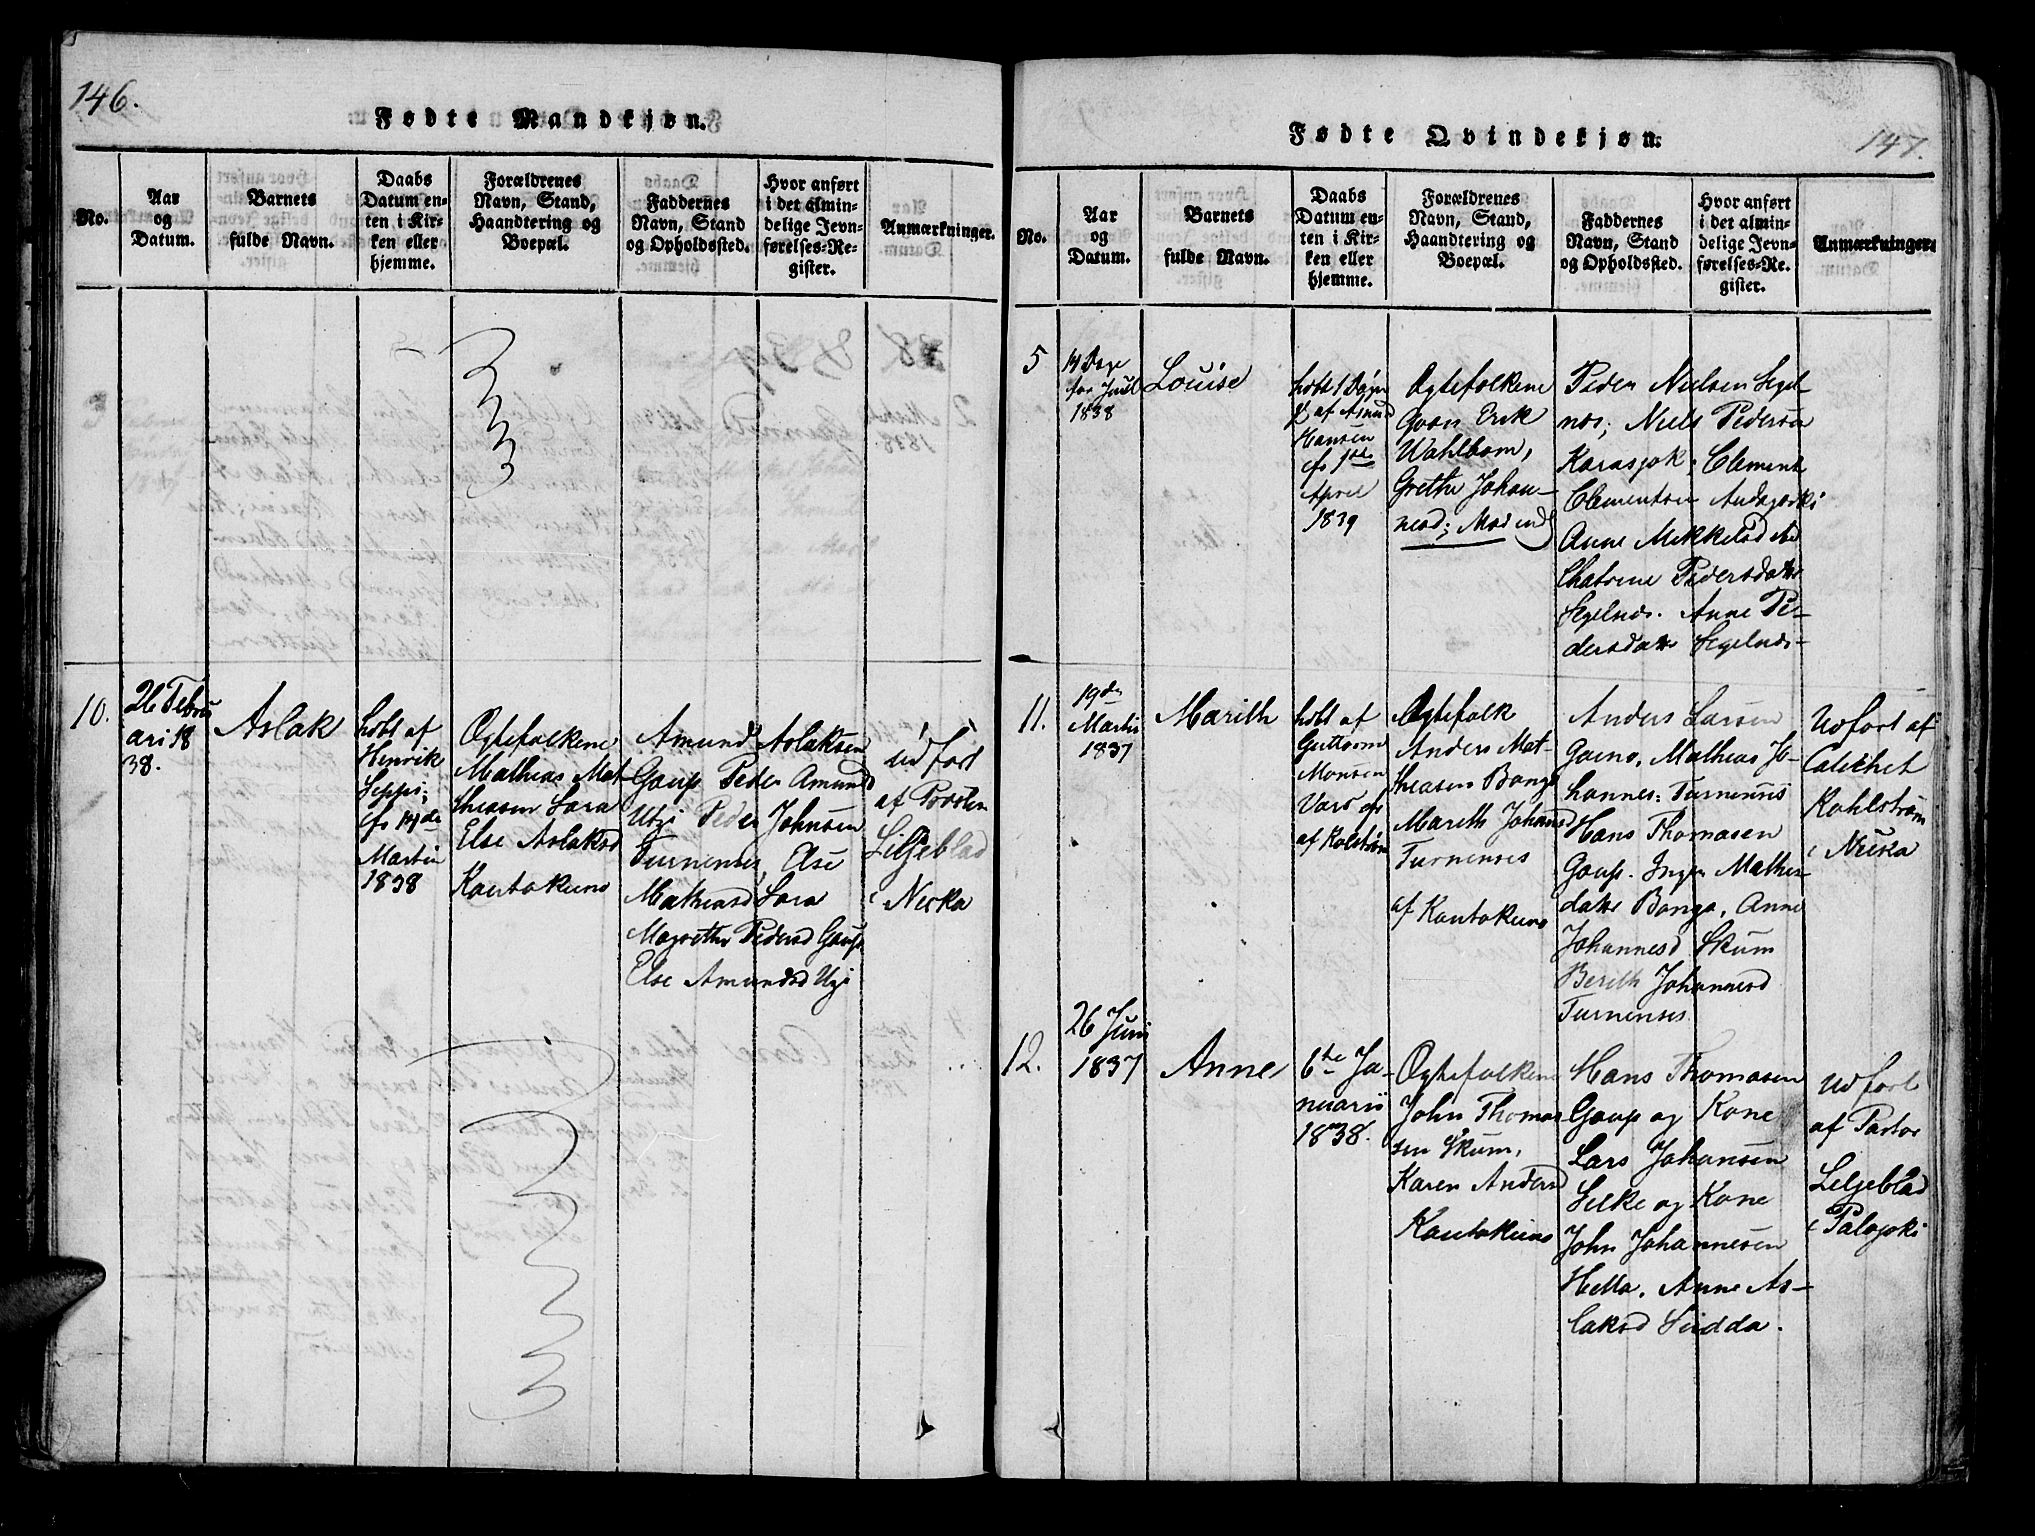 146.
Fødte Mandkjøn.
No.
Aar
og
Datum.
Barnets
fulde Navn.
Daabs
Datum en-
ten i Kir-
ken eller
hjemme.
Forældrenes
Navn, Stand,
Haandtering og
Boepæl.
Faddernes
Navn, Stand
og Opholdssted.
Hvor anført
i det almin-
delige Jevn-
førelses-Re-
gister.
Anmærkninger.
10.
26 Febru
ari 18
38.
Aslak
døbt af
Henrik
Seppi;
cfr 14de
Martii
1838
Ogtefolkene
Mathias Mat
thiasen Sara
Else Aslaksd
Koutokeino
Amund Aslaksen
Gaup Peder Amund
Utzi Peder Johnsen
Turnenses, Else
Mathiasd Sara
Magrethe Pedersd Gaup
Else Amundsd Uzi
udført
af Pastor
Liljeblad
i Neska
Fødte Qvindekjøn.
147.
No.
Aar
og
Datum.
Barnets
fulde Navn.
Daabs
Datum en-
ten i Kir-
ken eller
hjemme.
Forældrenes
Navn, Stand,
Haandtering og
Boepæl.
Faddernes
Navn, Stand
og Opholdssted.
Hvor anført
i det almin-
delige Jevn-
førelses-Re-
gister.
Anmærkninger.
5
14 Dage
før Juul
1838
Louise
døbt 1 Døgn
g. af Amund
Hansen
cfr 1ste
April
1839
Ogtefolkene
Erik
Wahlbom,
Grethe Johan-
nesd;
Peder Nielsen Segel
nes; Niels Pedersen
Karasjok; Clement
Clementsen
Anne Mikkelsd
Chatrine Pedersdatter
Segelnes. Anne Pe-
dersdatter Segelnes-
11.
19de
Martii
1837
Marith
døbt af
Guttorm
Monsen
Vars cfr
af Kolstrøm
Ogtefolk
Anders Mat-
thiasen Banga
Mareth Johansd
Turnenses
af Koutokeino
Anders Larsen
Gaino, Mathias Jo-
hannes: Turnenses
Hans Thomasen
Gaup. Inger Mathis-
datter Banga, Anne
Johannesd Skum
Berith Johannesd
Turnenses
Udført af
Catechet
Kohlstrøm
i Neska
12.
26 Juni
1837
Anne
6te Ja-
nuarii
1838.
Ogtefolkene
John Thomas
sen Skum,
Karen Andersd
Koutokeino
Hans Thomasen
Gaup og Kone
Lars Johansen
Silke og Kone
John Johannesen
Hetta, Anne As-
laksd Siidda.
Udført
af Pastor
Liljeblad
i Palojoki